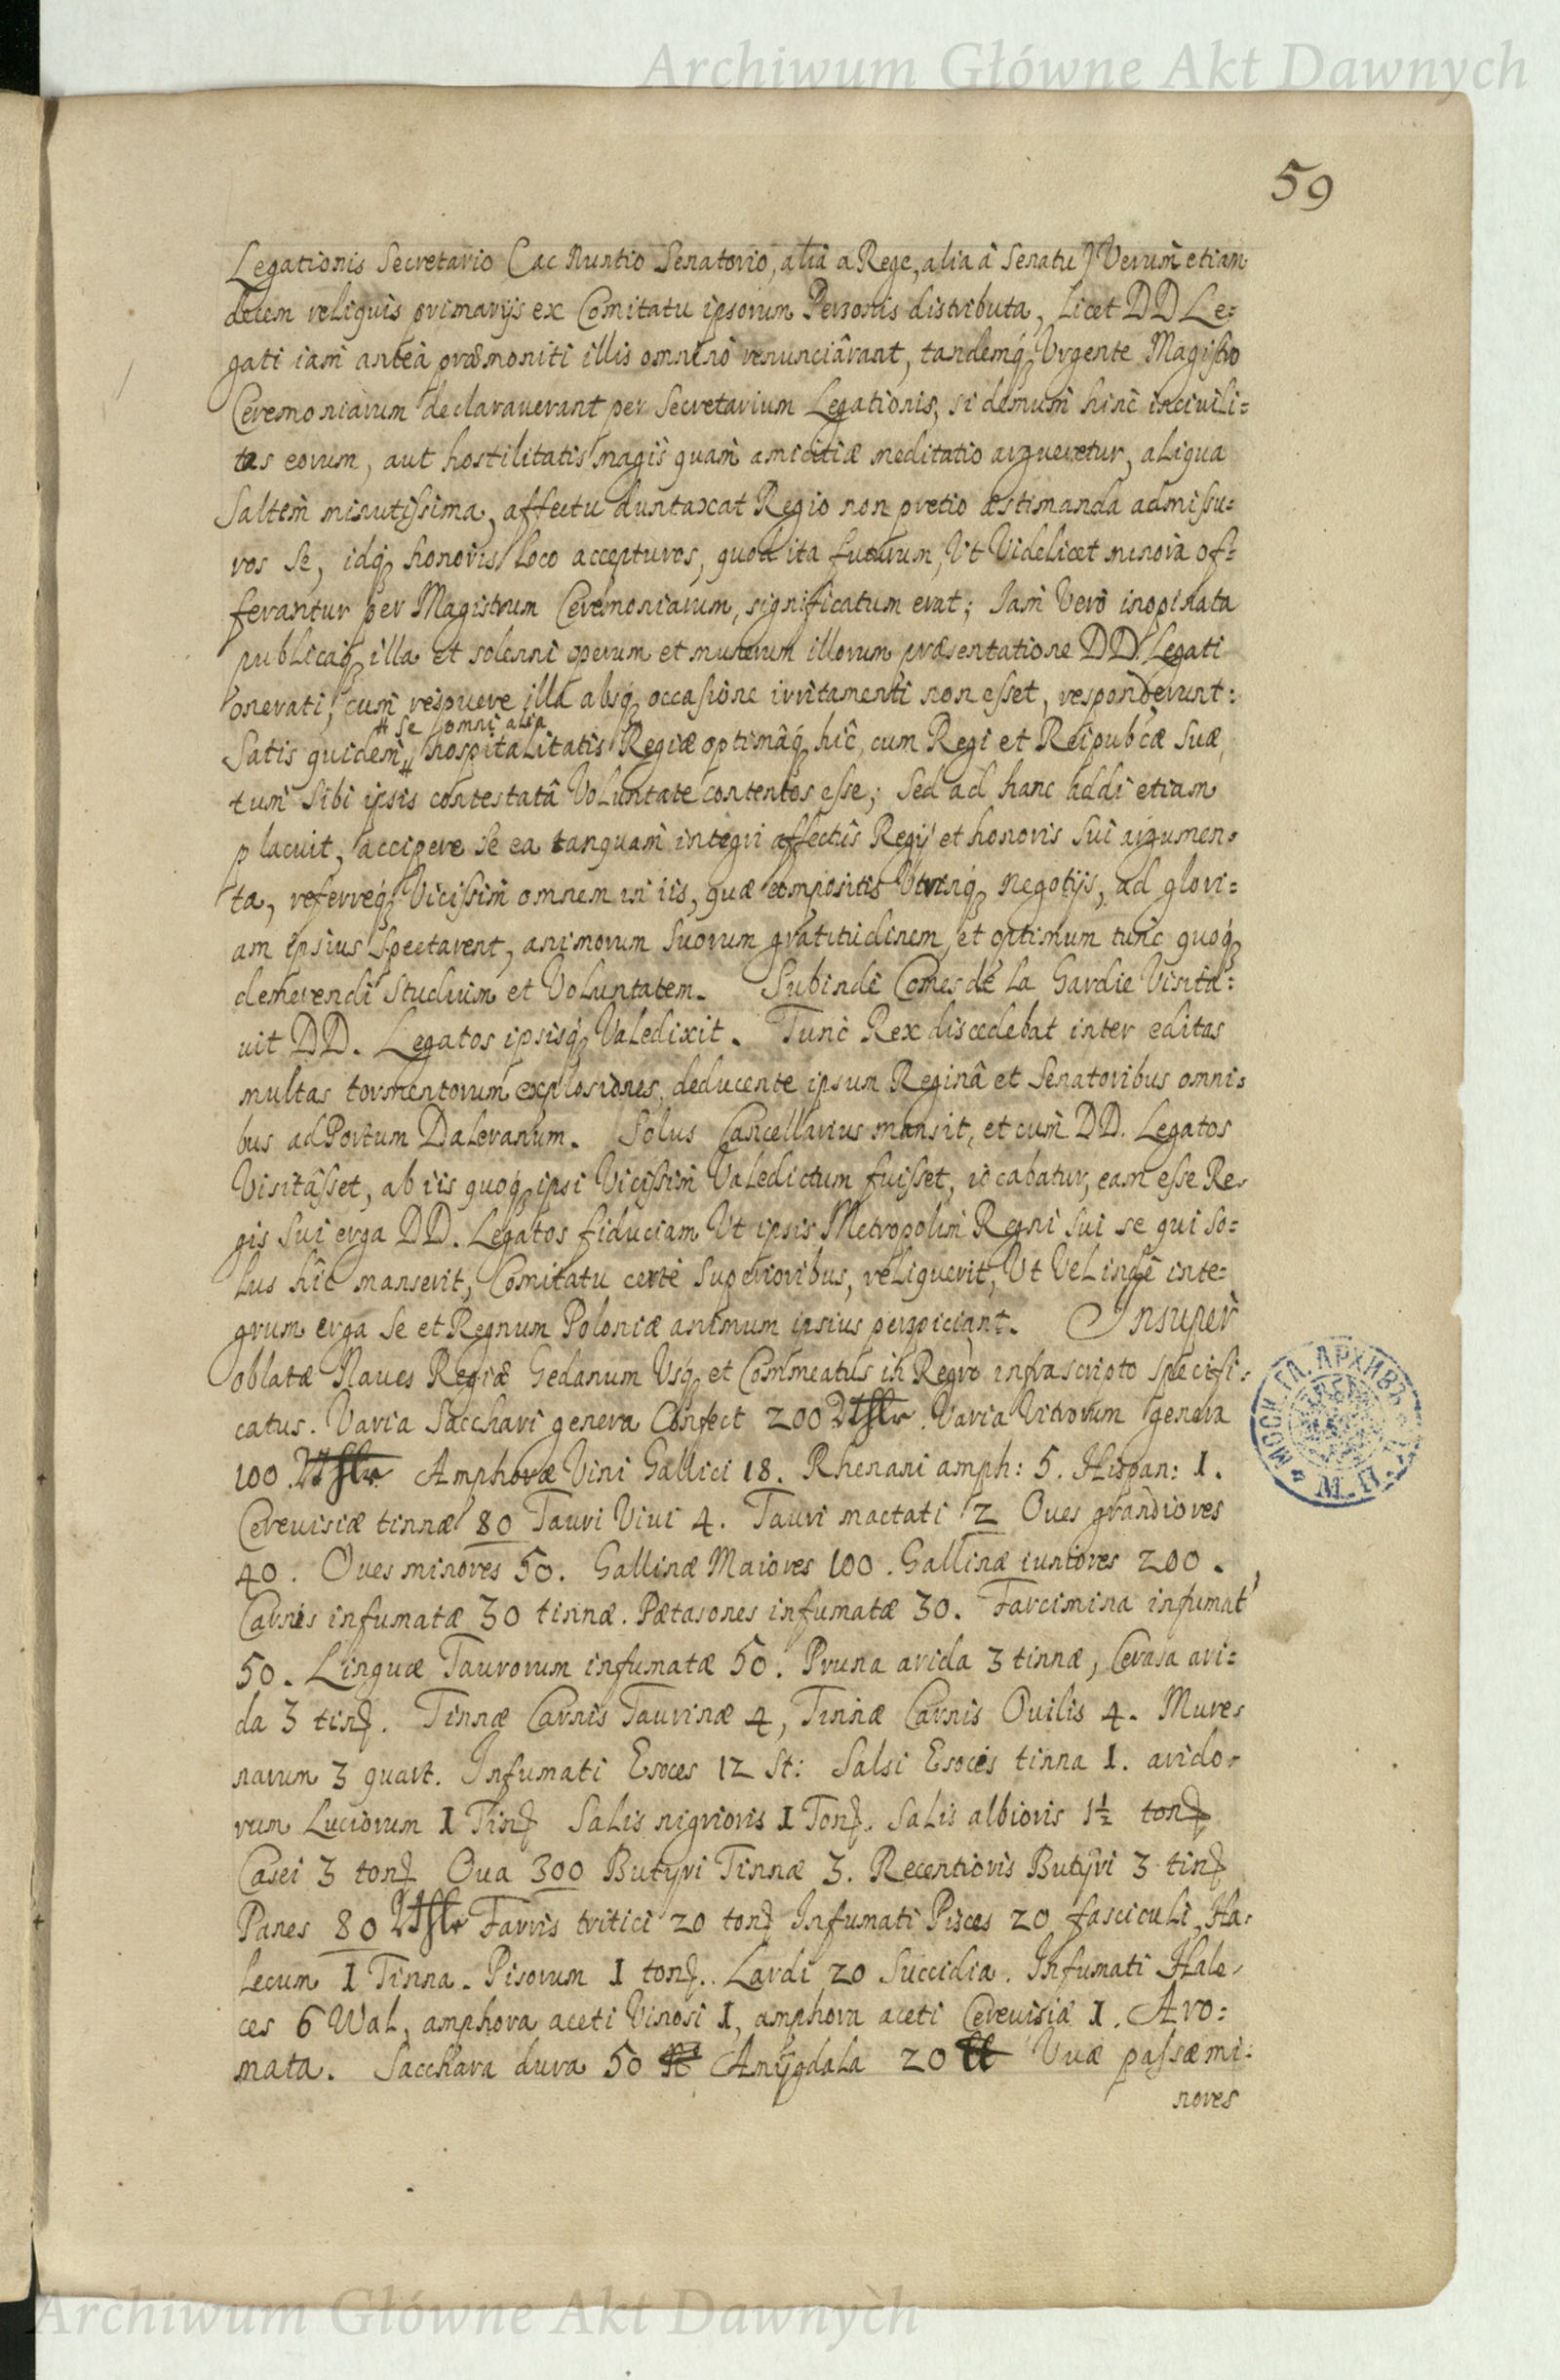 Archiwum Główne Akt Dawnych
59
Legationis Secretario (ac Nuntio Senatorio, alia a Rege, alia â Senatu) Verum etiam
decem reliquis primarijs ex Comitatu ipsorum Personis distributa, licet DD Le:
gati iam anteà præmoniti illis omninò renunciârant, tandemq; Vrgente Magistro
Ceremoniarum declarauerant per Secretarium Legationis, si demum hinc inciuili:
tas eorum, aut hostilitatis magis quam amicitiæ meditatio argueretur, aliqua
Saltem minutissima, affectu duntaxat Regio non pretio æstimanda admissu:
ros se, idq; honoris loco accepturos, quod ita futurum, Vt Videlicet minora of:
ferantur per Magistrum Ceremoniarum, significatum erat; Iam Verò inopinata
publicaq; illa et solenni operum et munerum illorum præsentatione DD. Legati
onerati, cum respuere illa absq; occasione irritamenti non esset, responderunt:
# se omni alia
Satis quidem # hospitalitatis Regiæ optimâq; hîc, cum Regi et Reipubcæ Suæ,
tum Sibi ipsis contestatâ Voluntate contentos esse; Sed ad hanc addi etiam
placuit, accipere se ea tanquam integri affectûs Regij et honoris Sui argumen:
ta, referreq; Vicissim omnem in iis, quæ compositis Vtrinq; negotijs, ad glori:
am ipsius Spectarent, animorum Suorum gratitudinem, et optimum tunc quoq;
demerendi Studium et Voluntatem. Subinde Comes de la Gardie Visita:
uit DD. Legatos ipsisq; Valedixit. Tunc Rex discedebat inter editas
multas tormentorum explosiones, deducente ipsum Reginâ et Senatoribus omni:
bus ad Portum Daleranum. Solus Cancellarius mansit, et cum DD. Legatos
Visitâsset, ab iis quoq; ipsi Vicissim Valedictum fuisset, iocabatur, eam esse Re:
gis Sui erga DD. Legatos fiduciam Vt ipsis Metropolim Regni Sui se qui So:
lus hîc manserit, Comitatu certè Superioribus, reliquerit, Vt Vel indè inte:
grum erga Se et Regnum Poloniæ animum ipsius perspiciant. Insuper
oblatæ Naues Regiæ Gedanum Vsq; et Commeatus in Regro infrascripto specifi:
catus. Varia Sacchari genera Confect 200 Varia Vitrorum genera
100. Amphoræ Vini Gallici 18. Rhenani amph: 5. Hispan: 1.
Cereuisiæ tinnæ 80 Tauri Viui 4. Tauri mactati 2 Oues grandiores
40. Oues minores 50. Gallinæ Maiores 100. Gallinæ iuniores 200.
Carnis infumatæ 30 tinnæ. Pætasones infumatæ 30. Farcimina infumat'
50. Linguæ Taurorum infumatæ 50. Pruna arida 3 tinnæ, Cerasa ari:
da 3 tin. Tinnæ Carnis Taurinæ 4, Tinnæ Carnis Ouilis 4. Mures
narum 3 quart. Infumati Esoces 12 St: Salsi Esoces tinna 1. arido:
rum Luciorum 1 Tin Salis nigrioris 1 Ton. Salis albioris 1½ ton
Casei 3 ton Oua 300 Butyri Tinnæ 3. Recentioris Butyri 3 tin
Panes 80 Farris tritici 20 ton Infumati Pisces 20 fasciculi, Ha:
lecum 1 Tinna. Pisorum 1 ton. Lardi 20 Succidia. Infumati Hale:
ces 6 Wal, amphora aceti Vinosi 1, amphora aceti Cereuisiæ 1. Aro:
mata. Sacchara dura 50 Amygdala 20 Vuæ passæ mi:
nores
Archiwum Główne Akt Dawnych